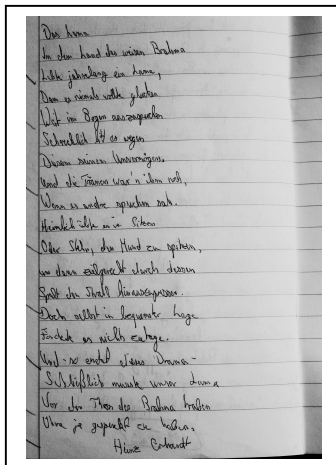 Das Lama
In dem Land des weisen Brahma
Lebte jahrelang ein Lama,
Dem es niemals wollte glücken
Weit im Bogen auszuspucken
Schrecklich litt es wegen
Diesem seinen Unvermögen,
Und die Tränen war'n ihm nah,
Wenn es andre spucken sah.
Heimlich übte es im Sitzen
Oder Stehn, den Mund zu spitzen,
um dann zielgerecht durch diesen
Spalt den Strahl hinauszugiessen.
Doch selbst in bequemster Lage
Förderte es nichts zutage.
Und - so endet dieses Drama -
Schließlich musste unser Lama
Vor den Thron des Brahma traben
Ohne je gespuckt zu haben.
Heinz Erhardt